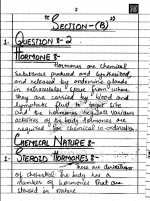 2
"SECTION-(B)"
1- QUESTION 8-2
HORMONE 8-
Hormones are chemical
substances produced and synthesized,
and released by endocrine glands
in extracellular space from where
they are carried by blood and
lymphatic fluid to target site
and the hormones regulate various
activities of the body. Hormones are
required for chemical co-ordination
CHEMICAL NATURE 8-
1- STEROID HORMONES 8-
These are derivatives
of cholesterol the body has a
number of hormones that are
steroid in nature